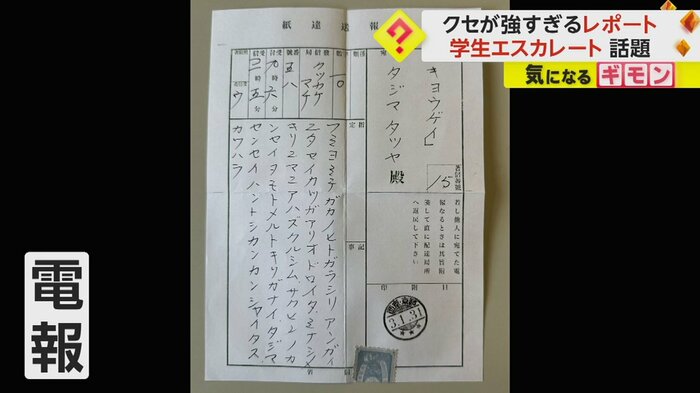 クセが強すぎるレポート
学生エスカレート 話題
気になるギモン
電報
紙達送報
キョウゲイ」
タジマタツヤ 殿
15
若し他人に宛てた電
報なるときは其旨附
箋して直に配達局所
へ返戻して下さい
印附日
3.1.31
定指
事記
クツカケ
マチ
五八
九時六分
二時五分
ウ
フミヨミテガカノヒトガラシリアンガイ
ニタセイカツガアリオドロイタ.ミナシメ
キリニマニアハズクルシム.サクヒンノカ
ンセイヲモトメルトキリガナイ.タジマ
センセイハントシカンカンシヤイタス.
カワハラ